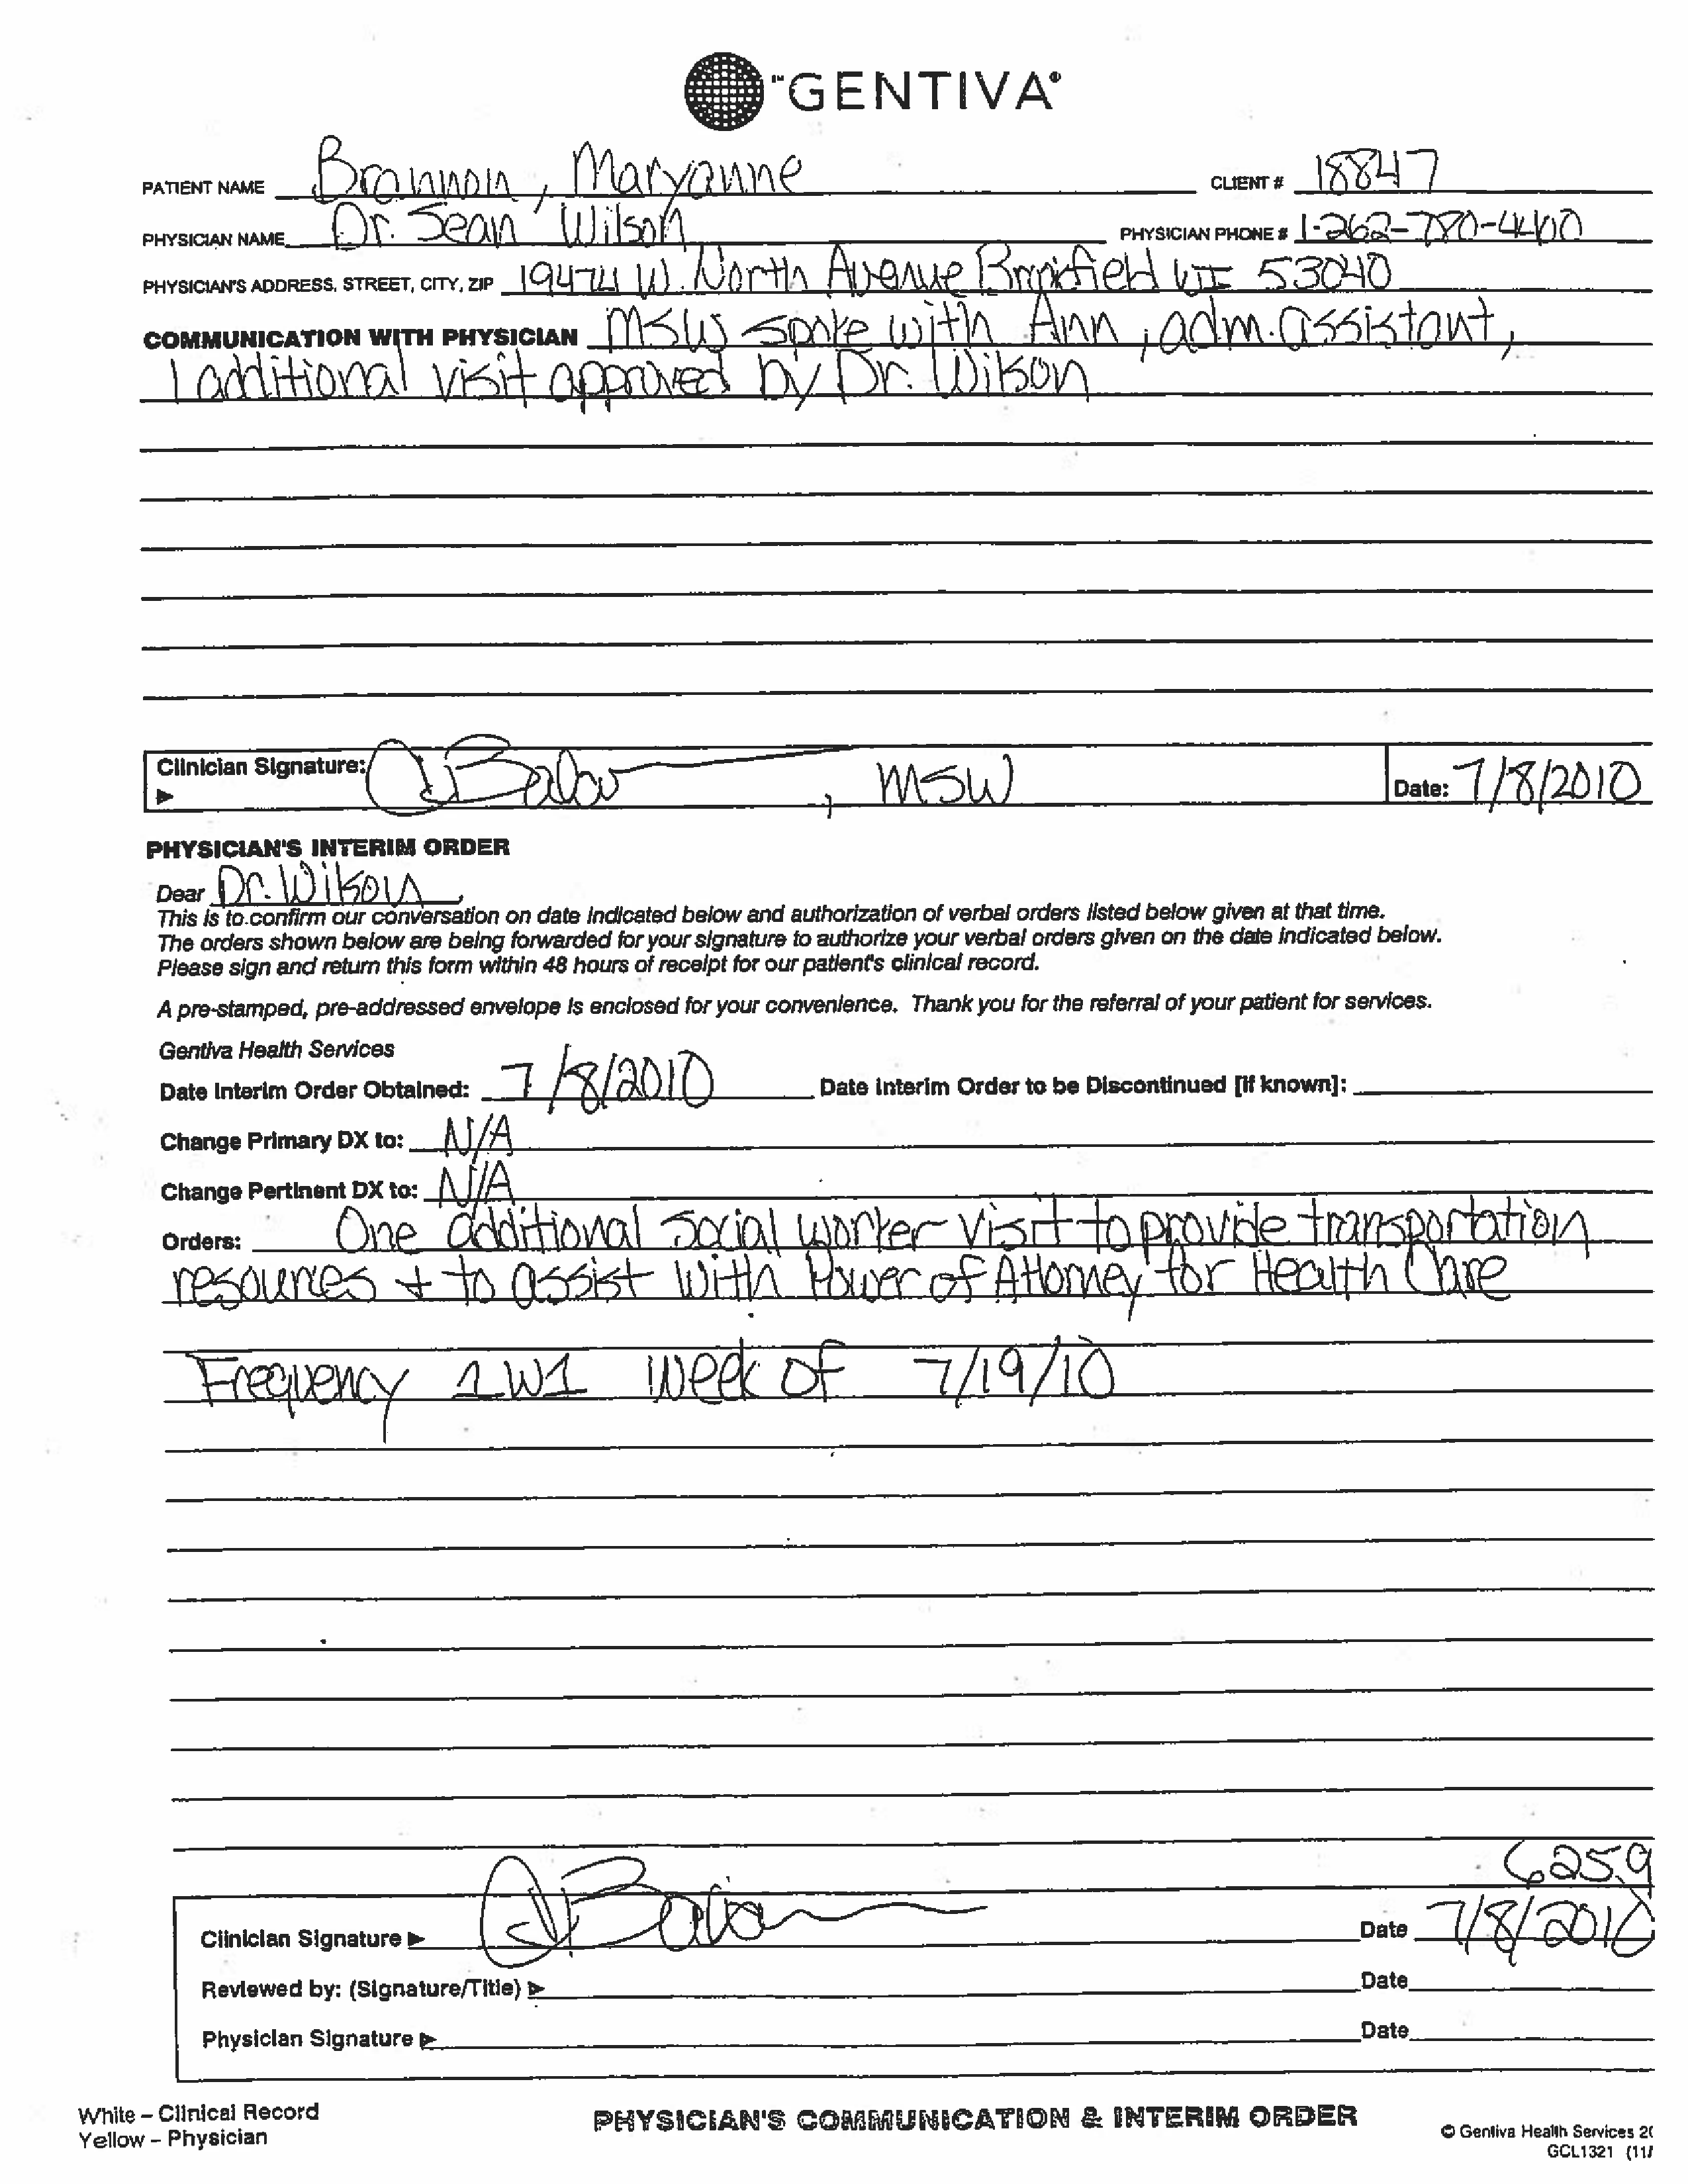 ™GENTIVA®
PATIENT NAME Brannon, Maryanne CLIENT # 18847
PHYSICIAN NAME Dr. Sean Wilson PHYSICIAN PHONE # 1-262-780-4400
PHYSICIAN'S ADDRESS, STREET, CITY, ZIP 19474 W. North Avenue Brookfield WI 53040
COMMUNICATION WITH PHYSICIAN MSW spoke with Ann, adm. assistant,
1 additional visit approved by Dr. Wilson
Clinician Signature: , MSW Date: 7/8/2010
PHYSICIAN'S INTERIM ORDER
Dear Dr. Wilson,
This is to confirm our conversation on date indicated below and authorization of verbal orders listed below given at that time.
The orders shown below are being forwarded for your signature to authorize your verbal orders given on the date indicated below.
Please sign and return this form within 48 hours of receipt for our patient's clinical record.
A pre-stamped, pre-addressed envelope is enclosed for your convenience. Thank you for the referral of your patient for services.
Gentiva Health Services
Date Interim Order Obtained: 7/8/2010 Date Interim Order to be Discontinued [if known]:
Change Primary DX to: N/A
Change Pertinent DX to: N/A
Orders: One additional social worker visit to provide transportation
resources + to assist with Power of Attorney for Health Care
Frequency 1W1 week of 7/19/10
6259
Clinician Signature Date 7/8/2010
Reviewed by: (Signature/Title) Date
Physician Signature Date
White – Clinical Record
Yellow – Physician
PHYSICIAN'S COMMUNICATION & INTERIM ORDER
© Gentiva Health Services 20
GCL1321 (11/